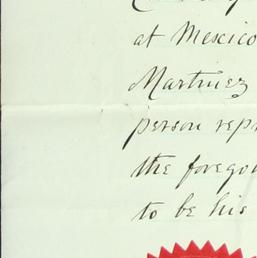 at Mexico
Martinez
person repr
the foregoi
to be his